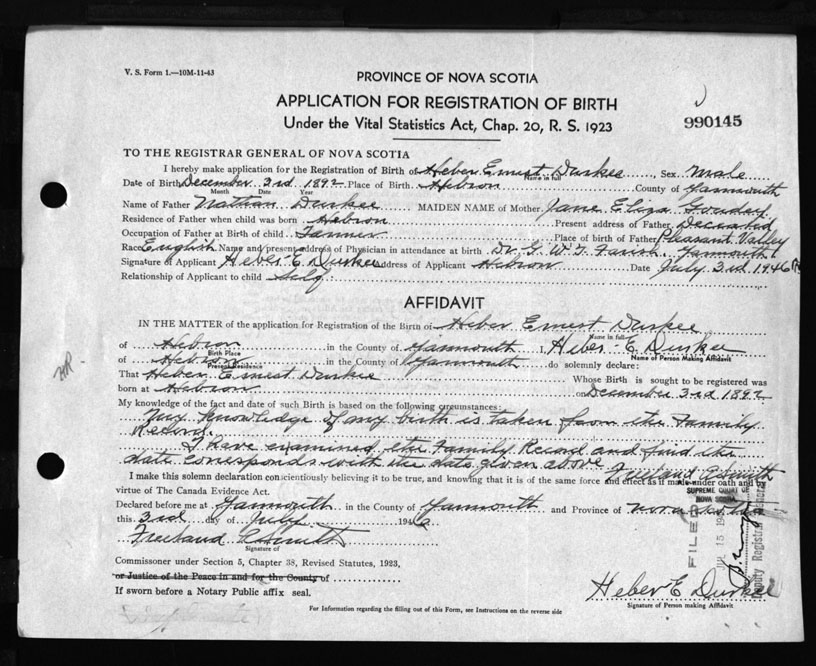 V. S. Form 1.—10M-11-43
PROVINCE OF NOVA SCOTIA
APPLICATION FOR REGISTRATION OF BIRTH
990145
Under the Vital Statistics Act, Chap. 20, R. S. 1923
TO THE REGISTRAR GENERAL OF NOVA SCOTIA
I hereby make application for the Registration of Birth of Heber Ernest Durkee Sex Male
Name in full
Date of Birth December 3rd 1892 Place of Birth Hebron County of Yarmouth
Month Date Year
Name of Father Nathan Durkee MAIDEN NAME of Mother Jane Eliza Goudey
Residence of Father when child was born Hebron Present address of Father Deceased
Occupation of Father at Birth of child Farmer Place of birth of Father Pleasant Valley
Race English Name and present address of Physician in attendance at birth Dr. G. W. T. Farish, Yarmouth
Signature of Applicant Heber E. Durkee Address of Applicant Hebron Date July 3rd 1946
Relationship of Applicant to child Self
AFFIDAVIT
IN THE MATTER of the application for Registration of the Birth of Heber Ernest Durkee
Name in full
of Hebron in the County of Yarmouth I, Heber E. Durkee
Birth Place Name of Person Making Affidavit
of Hebron in the County of Yarmouth do solemnly declare:
Present Residence
That Heber Ernest Durkee Whose Birth is sought to be registered was
born at Hebron on December 3rd 1892
My knowledge of the fact and date of such Birth is based on the following circumstances:
My knowledge of my birth is taken from the Family
Record.
I have examined the Family Record and find the
date corresponds with the date given above Freeland Smith
I make this solemn declaration conscientiously believing it to be true, and knowing that it is of the same force and effect as if made under oath and by
virtue of The Canada Evidence Act.
SUPREME COURT OF
NOVA SCOTIA
Declared before me at Yarmouth in the County of Yarmouth and Province of Nova Scotia
this 3rd day of July 1946
FILED
Deputy Registrar General
Signature of
Commissioner under Section 5, Chapter 38, Revised Statutes, 1923,
or Justice of the Peace in and for the County of
If sworn before a Notary Public affix seal.
Heber E Durkee
Signature of Person making Affidavit
For Information regarding the filling out of this Form, see Instructions on the reverse side